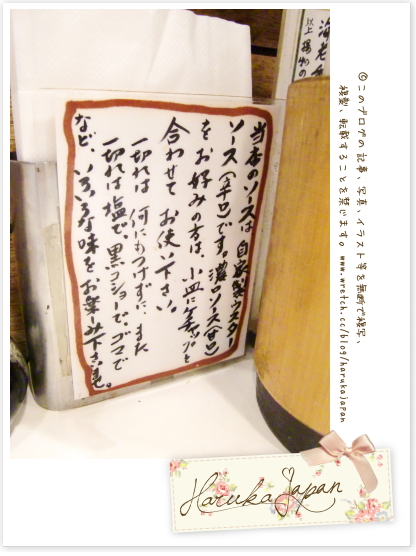 当店のソースは自家製ウスター
ソース(辛口)です。濃口ソース(甘口)
をお好みの方は、小皿にケチャップと
合わせてお使い下さい。
一切れは何にもつけずに、また
一切れは塩で、黒コショーで、ゴマで
など、いろいろな味をお楽しみ下さいませ。
海老
以上
©このブログの記事、写真、イラスト等を無断で複写、
複製、転載することを禁じます。www.wretch.cc/blog/harukajapan
Haruka Japan